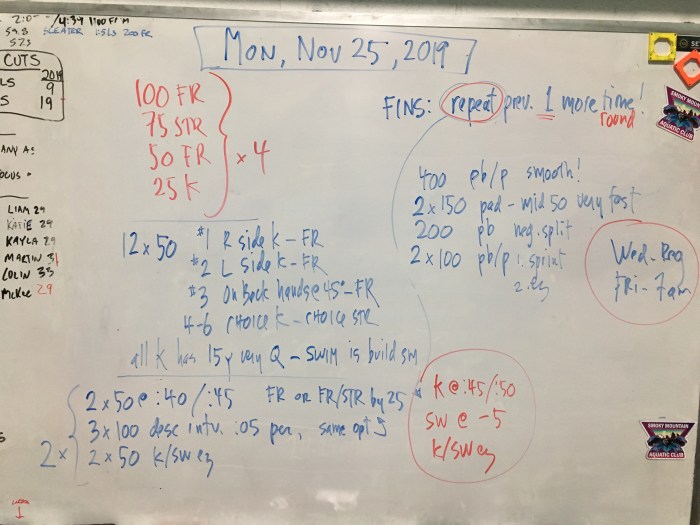 2:0
59.8
57.5
1:39 1100 FLM
SLEATER 1:51.3 200 FR
CUTS
2019
LS 9
S 19
ANY A:
OCUS
LIAM 29
KATIE 29
KAYLA 29
MARTIN 31
COLIN 35
McKee 29
MON, NOV 25, 2019
100 FR
75 STR
50 FR
25 K
x 4
12 x 50 #1 R side k - FR
#2 L side k - FR
#3 On Back hands @ 45° - FR
4-6 CHOICE K - CHOICE STR
all k has 15y very Q - SWIM is build sm
2 x
2 x 50 @ :40/:45 FR OR FR/STR by 25
3 x 100 desc intv. :05 per, same opt
2 x 50 k/sw ez
K @ :45/:50
SW @ -5
K/SW ez
FINS: repeat prev. 1 more time!
round
400 pb/p smooth!
2 x 150 pad - mid 50 very fast
200 pb neg. split
2 x 100 pb/p 1. sprint
2. ez
Wed - Reg
FRI - 7am
SMOKY MOUNTAIN
AQUATIC CLUB
SMOKY MOUNTAIN
AQUATIC CLUB